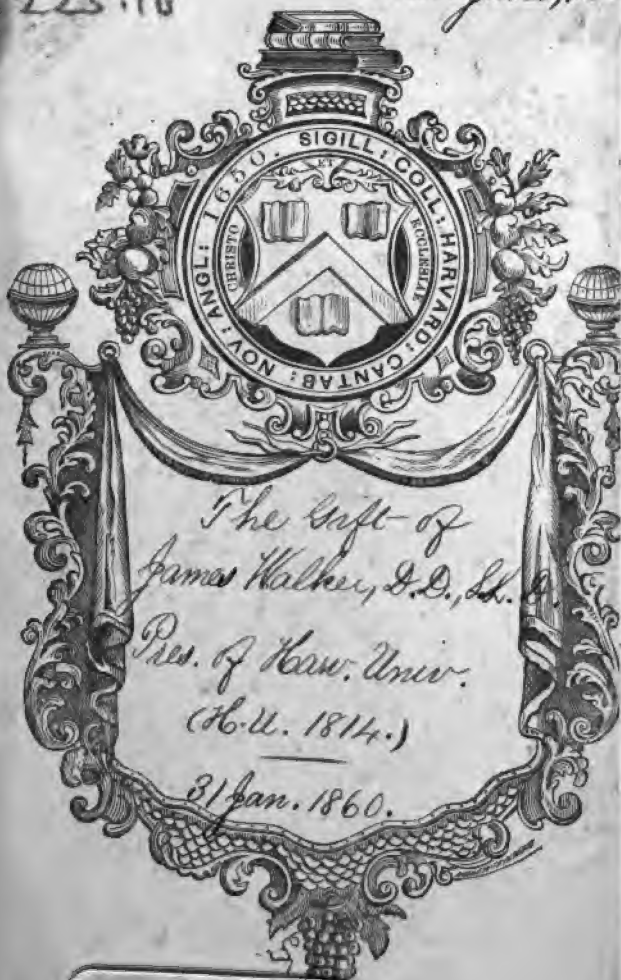 SIGILL: COLL: HARVARD: CANTAB: NOV: ANGL: 1650.
CHRISTO
ET
ECCLESIAE
The Gift of
James Walker, D.D., LL.D.
Pres. of Harv. Univ.
(H.U. 1814.)
31 Jan. 1860.